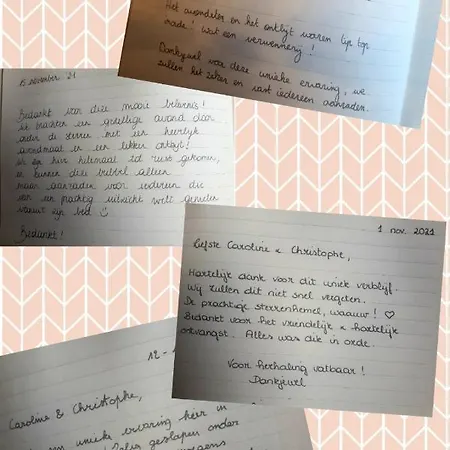 Het avondeten en het ontbijt waren tip top
orde! Wat een verwennerij!
Dankjewel voor deze unieke ervaring, we
zullen het zeker en vast iedereen aanraden.
15 november '21
Bedankt voor deze mooie belevenis!
We brachten een gezellige avond door
onder de sterren met een heerlijk
avondmaal en een lekker ontbijt!
We zijn hier helemaal tot rust gekomen,
en kunnen deze bubbel alleen
maar aanraden voor iedereen die
van een prachtig uitzicht wilt genieten
vanuit zijn bed. ☺
Bedankt!
1 nov. 2021
Liefste Caroline & Christophe,
Hartelijk dank voor dit uniek verblijf.
Wij zullen dit niet snel vergeten.
De prachtige sterrenhemel, waauw! ♡
Bedankt voor het vriendelijk & hartelijk
ontvangst. Alles was dik in orde.
Voor herhaling vatbaar!
Dankjewel
12-
Caroline & Christophe,
een unieke ervaring hier in
geslapen onder